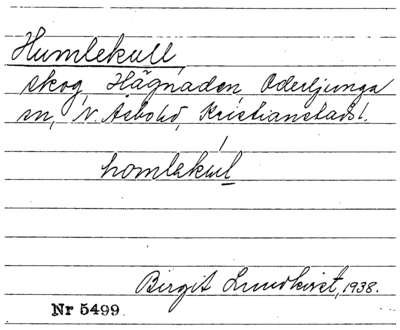 Humlekull
skog, Hägnaden, Oderljunga
sn, N. Åsbohd, Kristianstads l.
homlekul
Birgit Lundkvist, 1938.
Nr 5499